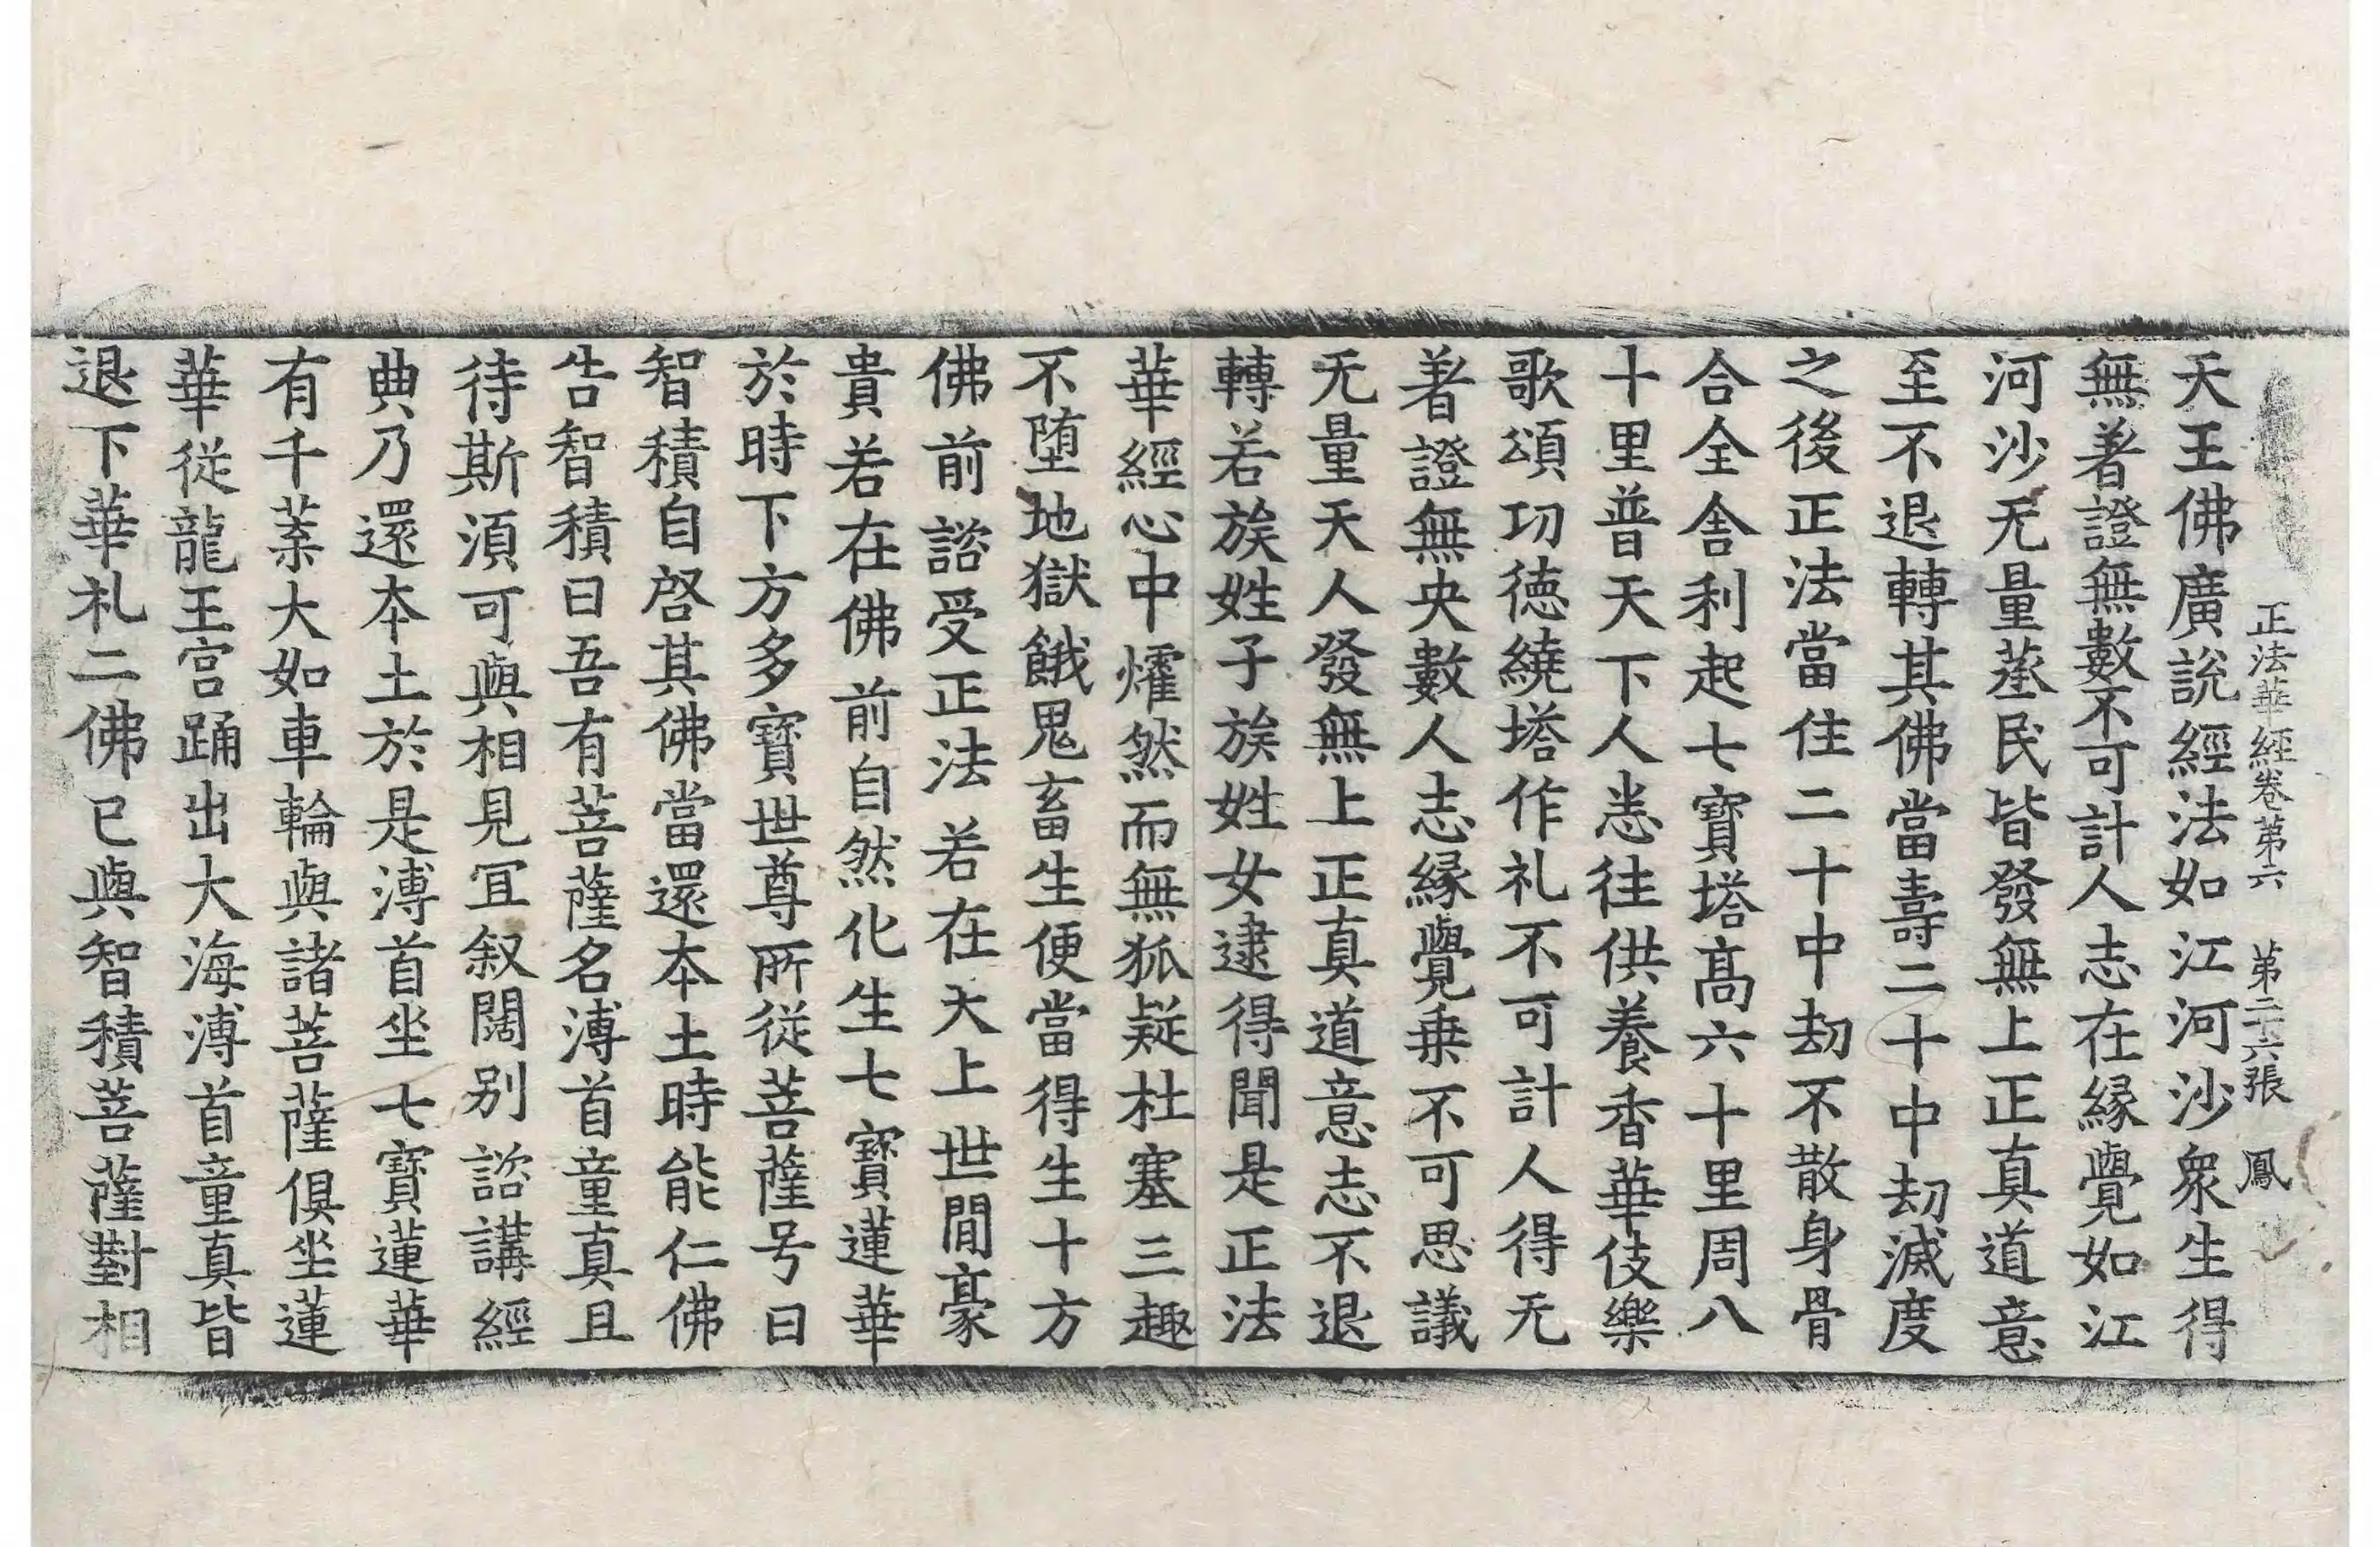 正法華經卷第六　第二十六張　鳳
天王佛廣說經法如江河沙衆生得
無著證無數不可計人志在緣覺如江
河沙无量蒸民皆發無上正真道意
至不退轉其佛當壽二十中劫滅度
之後正法當住二十中劫不散身骨
合全舍利起七寶塔髙六十里周八
十里普天下人悉往供養香華伎樂
歌頌功德繞塔作礼不可計人得无
著證無央數人志緣覺乗不可思議
无量天人發無上正真道意志不退
轉若族姓子族姓女逮得聞是正法
華經心中燿然而無狐疑杜塞三趣
不墮地獄餓鬼畜生便當得生十方
佛前諮受正法若在天上世間豪
貴若在佛前自然化生七寶蓮華
於時下方多寶世尊所從菩薩号曰
智積自啓其佛當還本土時能仁佛
告智積曰吾有菩薩名溥首童真且
待斯須可與相見宜叙闊别諮講經
典乃還本土於是溥首坐七寶蓮華
有千葉大如車輪與諸菩薩俱坐蓮
華從龍王宮踊出大海溥首童真皆
退下華礼二佛已與智積菩薩對相